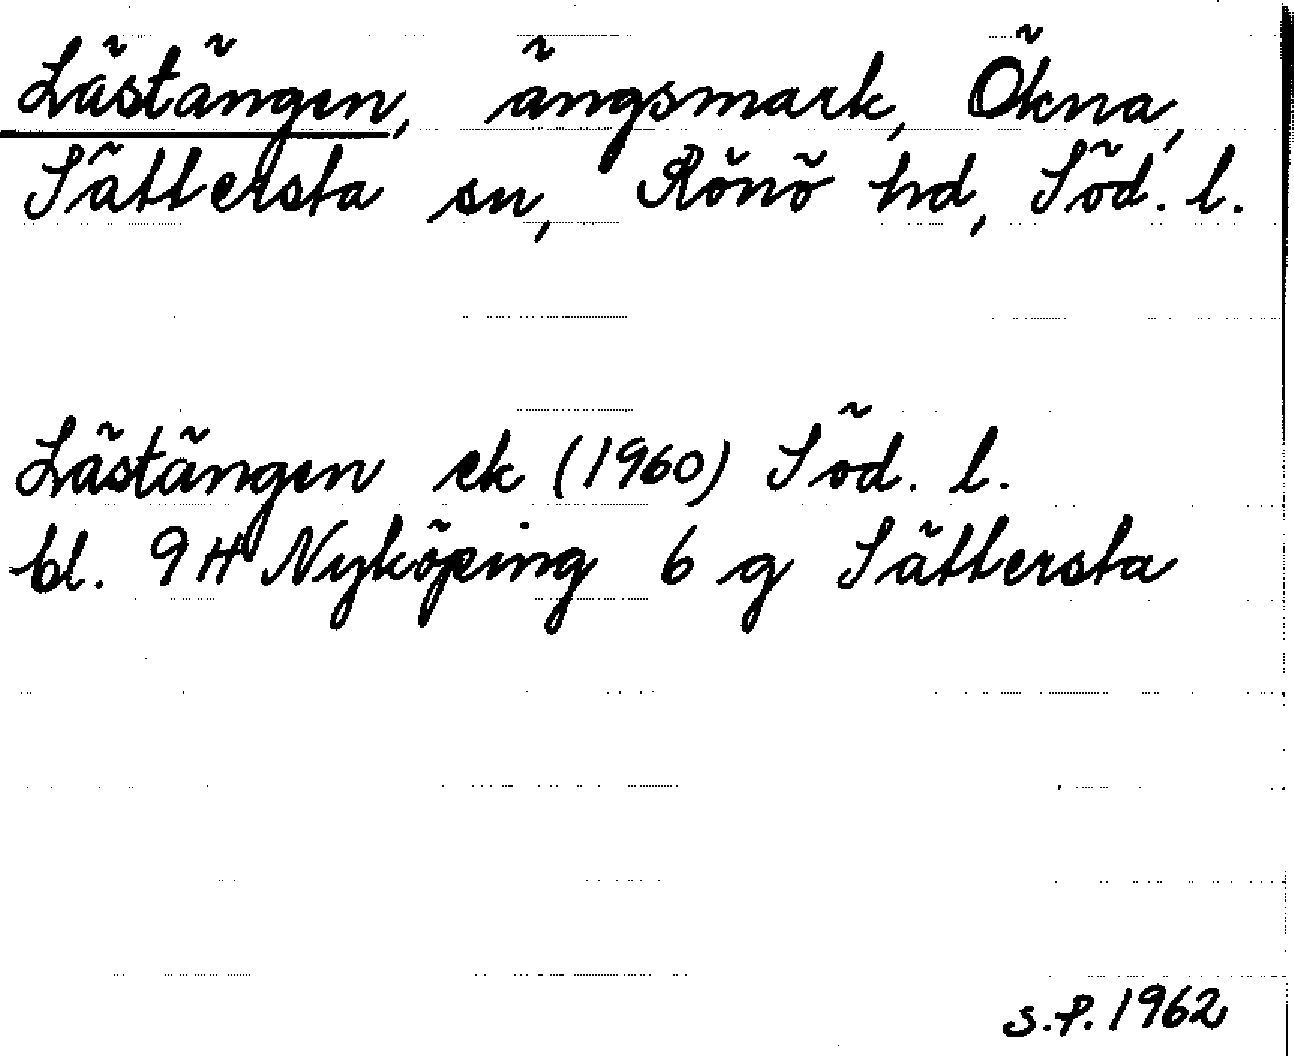 Lästängen, ängsmark, Ökna,
Sättersta sn, Rönö hd, Söd. l.
Lästängen ek (1960) Söd. l.
bl. 9H Nyköping 6 g Sättersta
S.P. 1962